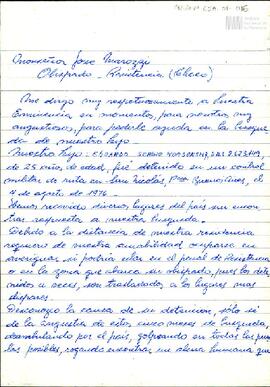 Monseñor Jose Marozzi
Obispado - Resistencia (Chaco)
Me dirijo muy respetuosamente a Vuestra
Eminencia en momentos, para nosotros, muy
angustiosos, para pedirle ayuda en la búsque
da de nuestro hijo.
Nuestro hijo: EDGARDO
de 25 años de edad, fue detenido en un control
militar de ruta en San Nicolás, Pcia Buenos Aires, el
4 de agosto de 1976.
Hemos recorrido diversos lugares del país sin encon
trar respuesta a nuestra búsqueda.
Debido a la distancia de nuestra residencia
rogamos de vuestra amabilidad ocuparse en
averiguar, si podría estar en el penal de Resistencia
o en la zona que abarca su obispado, pues los dete
nidos a veces, son trasladados a los lugares mas
dispares.
Desconozco la causa de su detencion, sólo sé
de la angustia de estos cinco meses de búsqueda,
deambulando por el país, golpeando en todas las puer
tas posibles, rogando encontrar un alma humana que